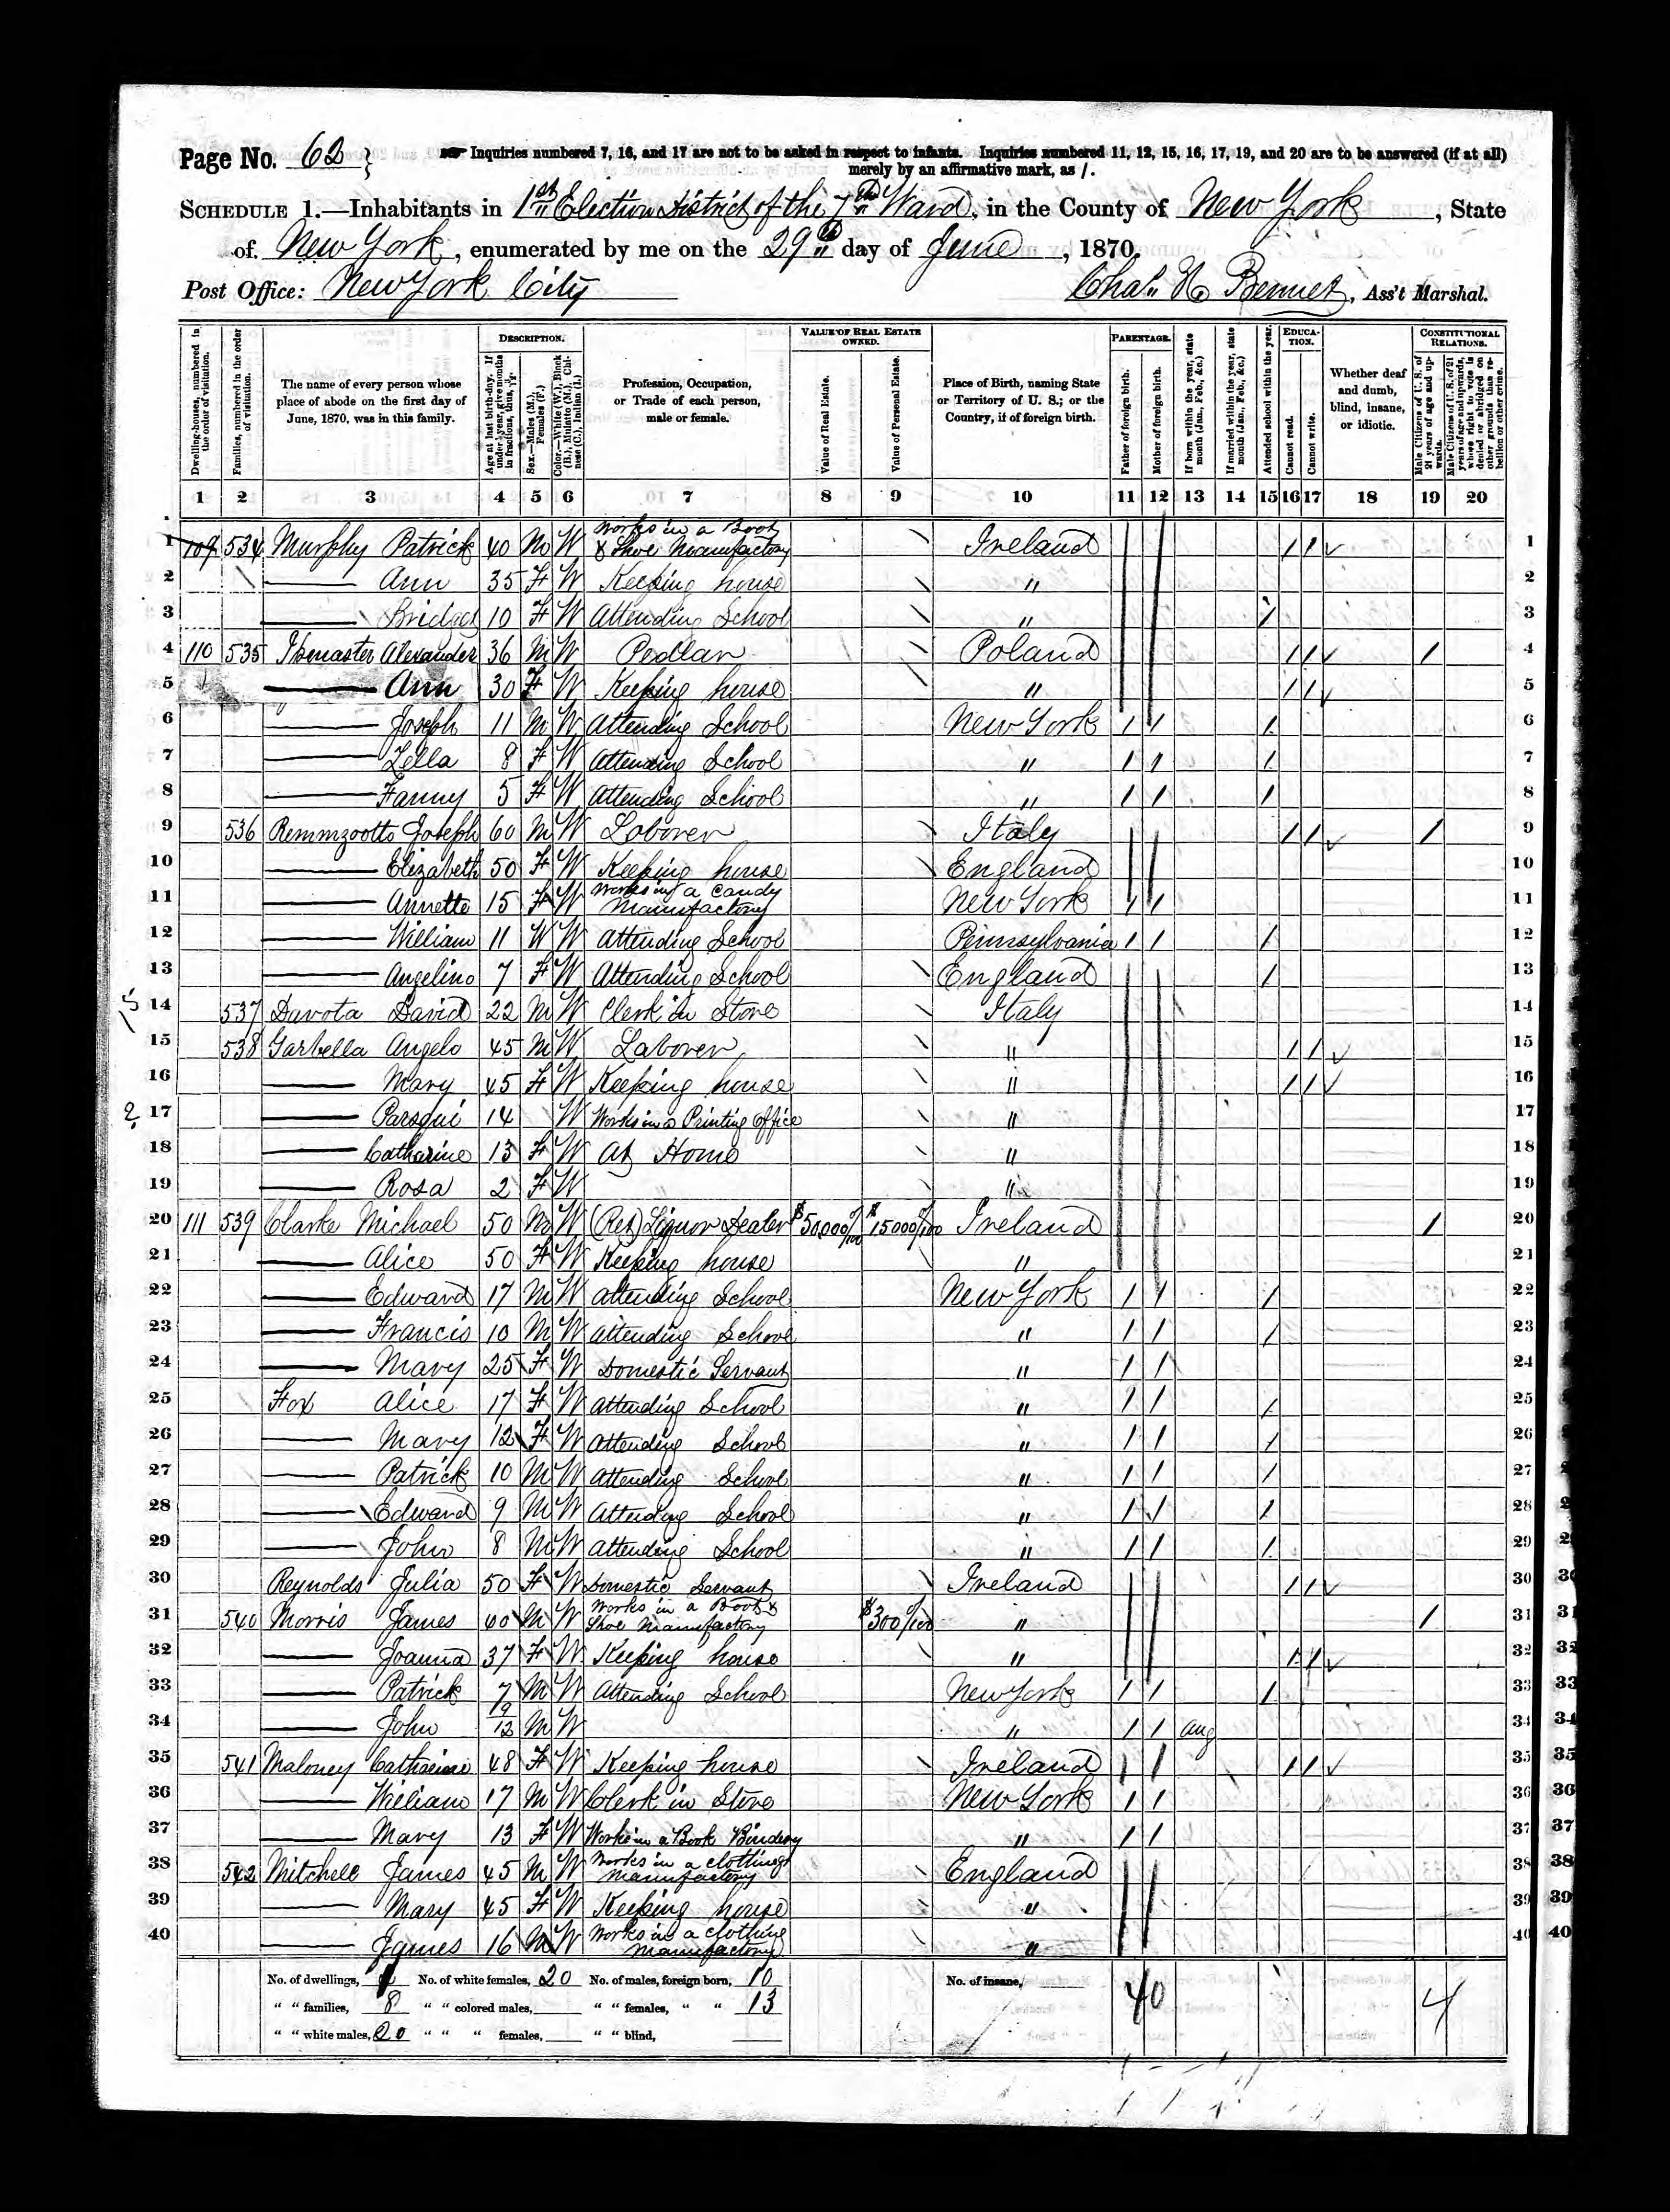 Page No. 62 }
Inquiries numbered 7, 16, and 17 are not to be asked in respect to infants. Inquiries numbered 11, 12, 15, 16, 17, 19, and 20 are to be answered (if at all)
merely by an affirmative mark, as /.
SCHEDULE 1.—Inhabitants in 1st Election District of the 7th Ward, in the County of New York, State
of New York, enumerated by me on the 29th day of June, 1870.
Post Office: New York City Chas. H. Bennet, Ass't Marshal.
Dwelling-houses, numbered in the order of visitation.
Families, numbered in the order of visitation.
The name of every person whose place of abode on the first day of June, 1870, was in this family.
DESCRIPTION.
Age at last birth-day. If under 1 year, give months in fractions, thus, 3/12.
Sex.—Males (M.), Females (F.)
Color.—White (W.), Black (B.), Mulatto (M.), Chinese (C.), Indian (I.)
Profession, Occupation, or Trade of each person, male or female.
VALUE OF REAL ESTATE OWNED.
Value of Real Estate.
Value of Personal Estate.
Place of Birth, naming State or Territory of U. S.; or the Country, if of foreign birth.
PARENTAGE.
Father of foreign birth.
Mother of foreign birth.
If born within the year, state month (Jan., Feb., &c.)
If married within the year, state month (Jan., Feb., &c.)
Attended school within the year.
EDUCATION.
Cannot read.
Cannot write.
Whether deaf and dumb, blind, insane, or idiotic.
CONSTITUTIONAL RELATIONS.
Male Citizens of U. S. of 21 years of age and upwards.
Male Citizens of U. S. of 21 years of age and upwards, whose right to vote is denied or abridged on other grounds than rebellion or other crime.
1 2 3 4 5 6 7 8 9 10 11 12 13 14 15 16 17 18 19 20
1 109 534 Murphy Patrick 40 M W Works in a Boot & Shoe Manufactory Ireland / / / / 1
2 Ann 35 F W Keeping house " / / 2
3 Bridget 10 F W Attending School " / / / 3
4 110 535 Alexander 36 M W Pedlar Poland / / / / / 4
5 Ann 30 F W Keeping house " / / / / 5
6 Joseph 11 M W Attending School New York / / / 6
7 Zella 8 F W Attending School " / / / 7
8 Fanny 5 F W Attending School " / / / 8
9 536 Remmzootto Joseph 60 M W Laborer Italy / / / / / 9
10 Elizabeth 50 F W Keeping house England / / 10
11 Annette 15 F W Works in a Candy Manufactory New York / / 11
12 William 11 W W Attending School Pennsylvania / / / 12
13 Angelino 7 F W Attending School England / / / 13
14 537 Davota David 22 M W Clerk in Store Italy / / 14
15 538 Garbella Angelo 45 M W Laborer " / / / / 15
16 Mary 45 F W Keeping house " / / / / 16
17 Parsqui 14 W Works in a Printing Office " / / 17
18 Catharine 13 F W At Home " / / 18
19 Rosa 2 F W " / / 19
20 111 539 Clarke Michael 50 M W (Ret) Liquor Dealer $50,000 0/100 $15000 0/100 Ireland / / / 20
21 Alice 50 F W Keeping house " / / 21
22 Edward 17 M W Attending School New York / / / 22
23 Francis 10 M W Attending School " / / / 23
24 Mary 25 F W Domestic Servant " / / 24
25 Fox Alice 17 F W Attending School " / / / 25
26 Mary 12 F W Attending School " / / / 26
27 Patrick 10 M W Attending School " / / / 27
28 Edward 9 M W Attending School " / / / 28
29 John 8 M W Attending School " / / / 29
30 Reynolds Julia 50 F W Domestic Servant Ireland / / / / 30
31 540 Morris James 60 M W Works in a Boot & Shoe Manufactory $300 0/100 " / / / 31
32 Joanna 37 F W Keeping house " / / / / 32
33 Patrick 7 M W Attending School New York / / / 33
34 John 10/12 M W " / / Aug 34
35 541 Maloney Catharine 48 F W Keeping house Ireland / / / / 35
36 William 17 M W Clerk in Store New York / / 36
37 Mary 13 F W Works in a Book Bindery " / / 37
38 542 Mitchell James 45 M W Works in a Clothing Manufactory England / / 38
39 Mary 45 F W Keeping house " / / 39
40 James 16 M W Works in a Clothing Manufactory " / / 40
No. of dwellings, No. of white females, 20 No. of males, foreign born, 10 No. of insane,
" " families, 8 " " colored males, " " females, " " 13 40 4
" " white males, 20 " " " females, " " blind,